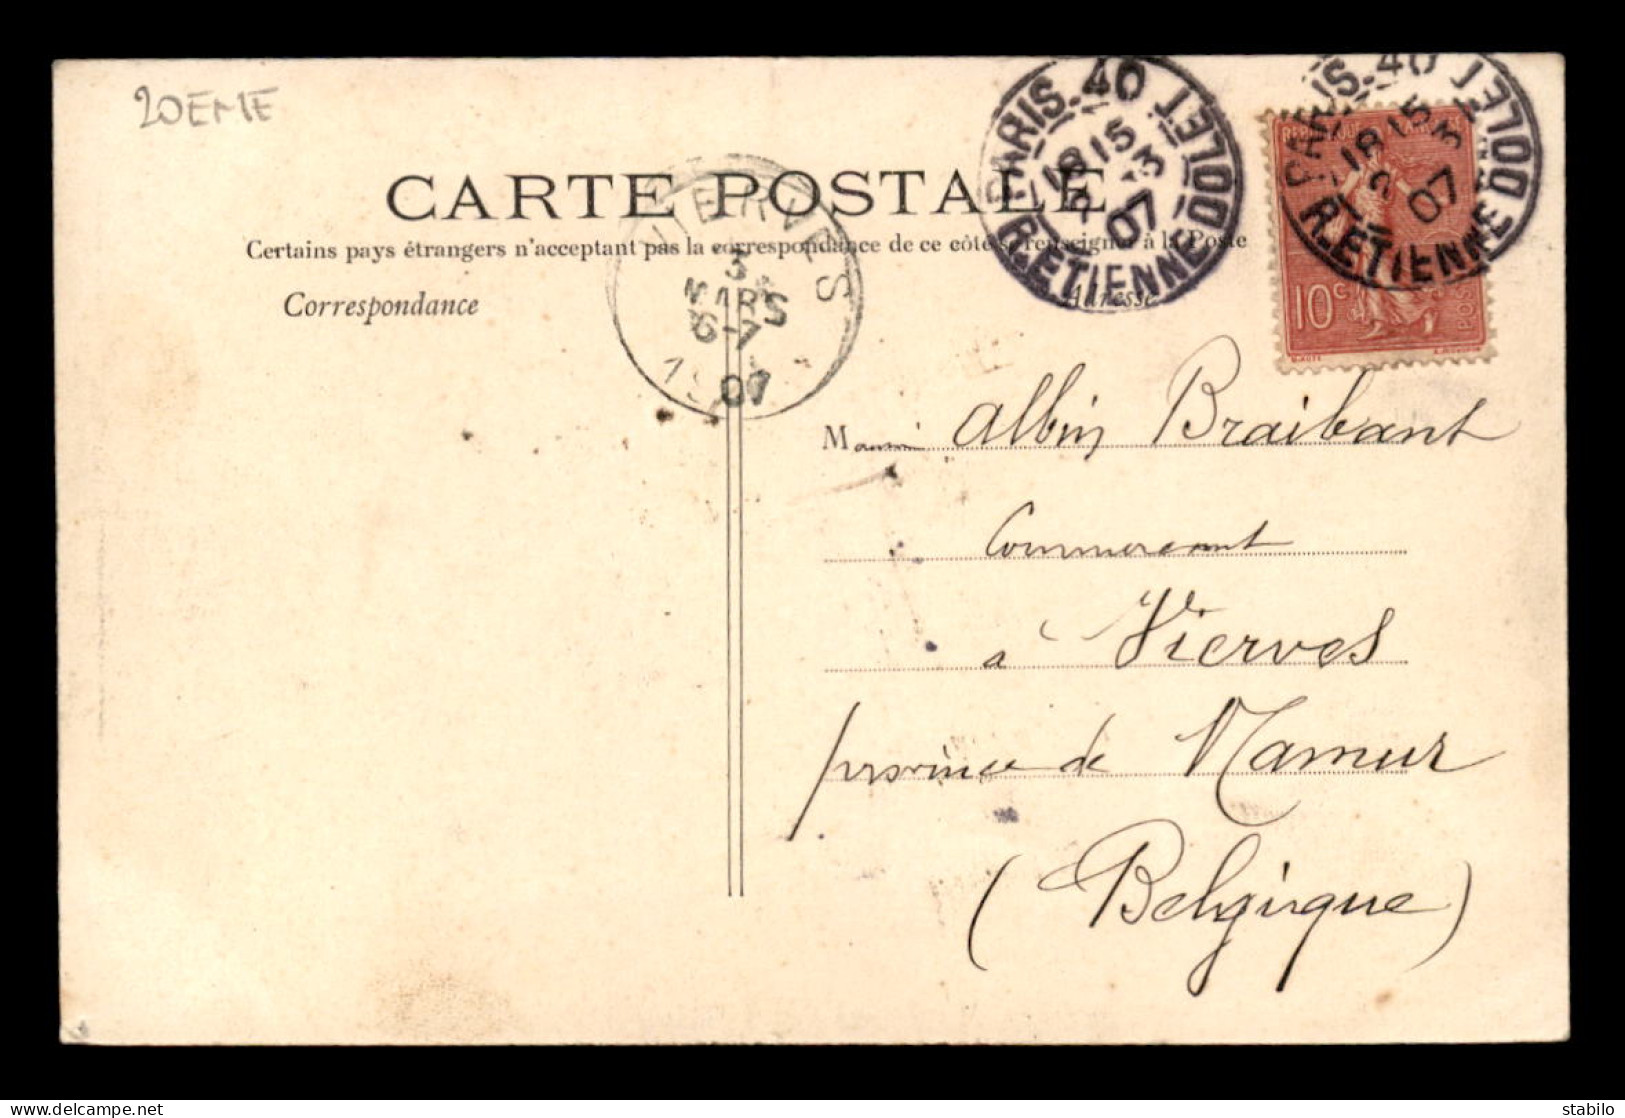 20EME
CARTE POSTALE
Certains pays étrangers n'acceptent pas la correspondance de ce côté se renseigner à la Poste
Correspondance
Adresse
VIERVES
3
MARS
6-7
1907
PARIS-40
18 15
2 -3
07
R. ETIENNE DOLET
PARIS-40
18 15
2 3
07
R. ETIENNE DOLET
10c
POSTES
Monsieur Albin Braibant
Commercant
à Vierves
province de Namur
(Belgique)
delcampe.net
stabilo